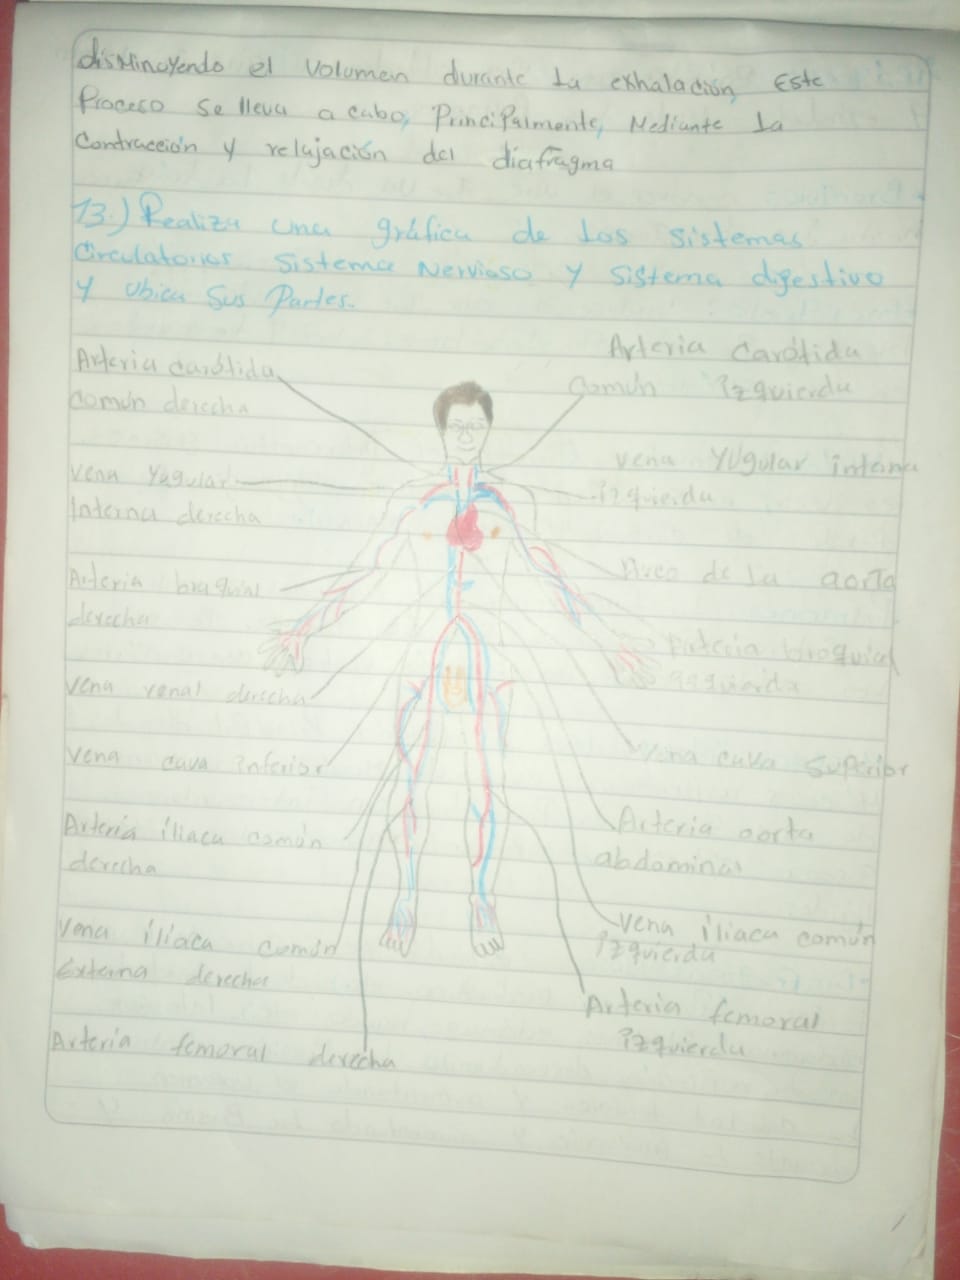 disminuyendo el volumen durante la exhalación, Este
Proceso se lleva a cabo, Principalmente, Mediante la
Contracción y relajación del diafragma
13.) Realiza una gráfica de los sistemas
Circulatorios sistema Nervioso y sistema digestivo
y ubica sus Partes.
Arteria carótida
común derecha
Arteria Carótida
común izquierda
vena Yugular
Interna derecha
vena Yugular interna
izquierda
Arteria braquial
derecha
Arco de la aorta
Arteria braquial
izquierda
vena renal derecha
vena cava inferior
vena cava superior
Arteria íliaca común
derecha
Arteria aorta
abdominal
vena íliaca común
Externa derecha
vena íliaca común
izquierda
Arteria femoral
izquierda
Arteria femoral derecha